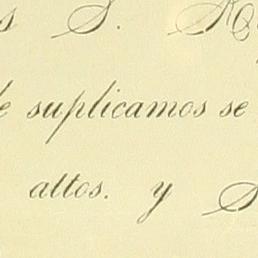 S.
suplicamos se
altos. y